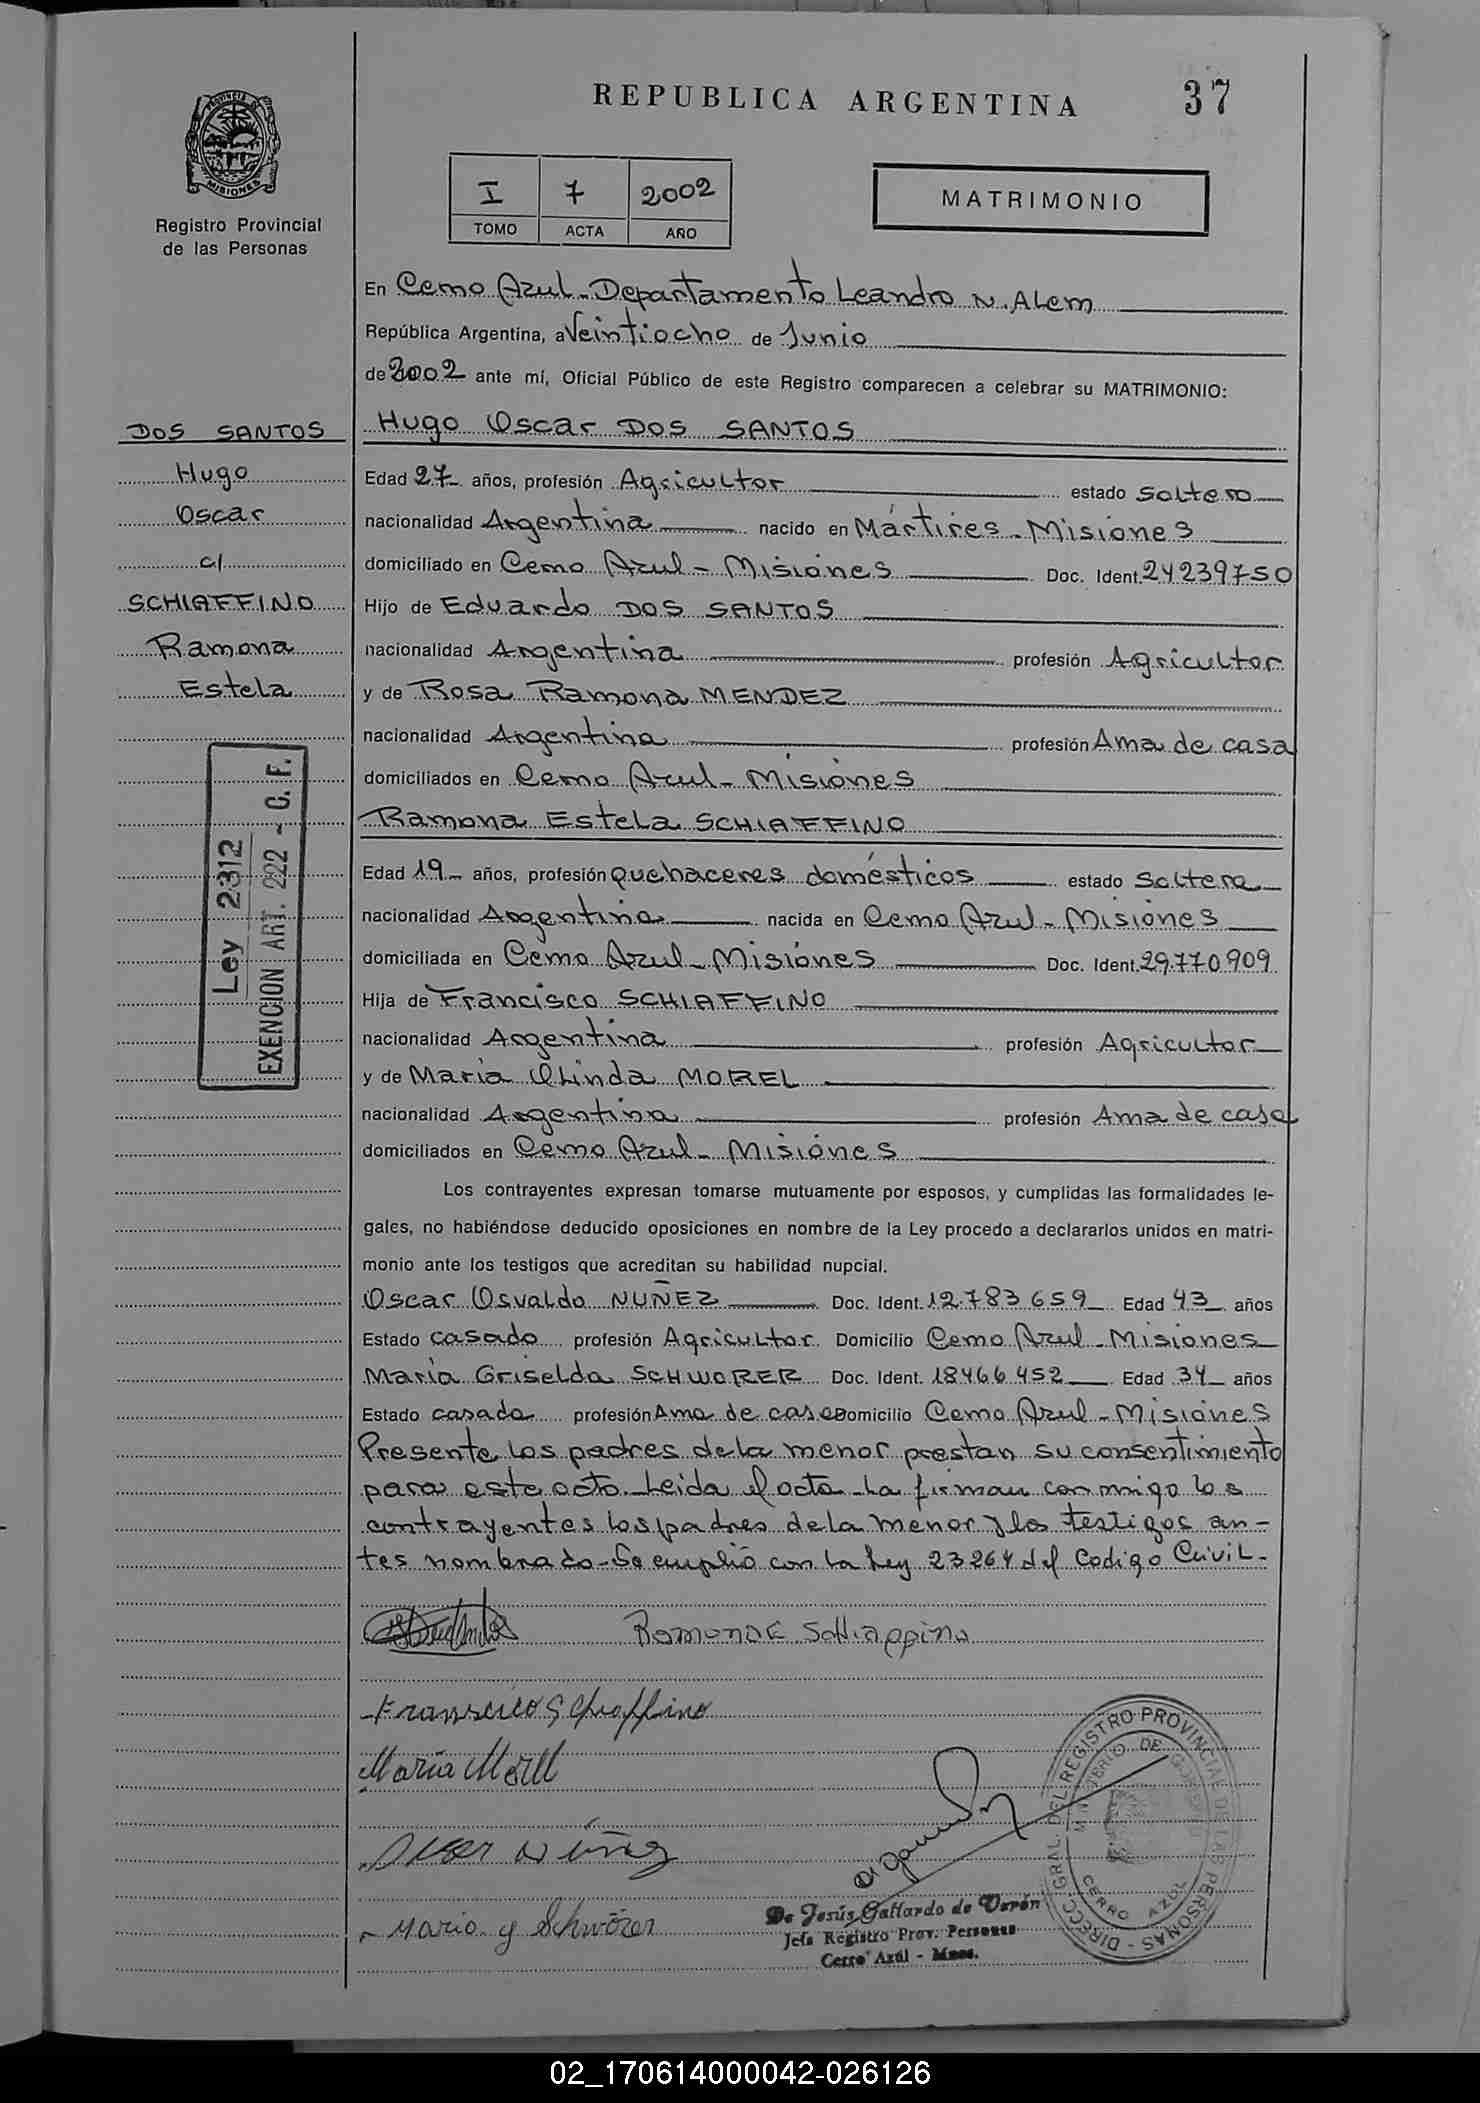 REPUBLICA ARGENTINA
37
PROVINCIA DE
MISIONES
Registro Provincial
de las Personas
I 7 2002
TOMO ACTA AÑO
MATRIMONIO
En Cerro Azul - Departamento Leandro N. Alem
República Argentina, a Veintiocho de Junio
de 2002 ante mí, Oficial Público de este Registro comparecen a celebrar su MATRIMONIO:
DOS SANTOS
Hugo
Oscar
c/
SCHIAFFINO
Ramona
Estela
Ley 2312
EXENCION ART. 222 - C. F.
Hugo Oscar DOS SANTOS
Edad 27 años, profesión Agricultor estado Soltero
nacionalidad Argentina nacido en Mártires - Misiones
domiciliado en Cerro Azul - Misiones Doc. Ident. 24239750
Hijo de Eduardo DOS SANTOS
nacionalidad Argentina profesión Agricultor
y de Rosa Ramona MENDEZ
nacionalidad Argentina profesión Ama de casa
domiciliados en Cerro Azul - Misiones
Ramona Estela SCHIAFFINO
Edad 19 años, profesión quehaceres domésticos estado Soltera
nacionalidad Argentina nacida en Cerro Azul - Misiones
domiciliada en Cerro Azul - Misiones Doc. Ident. 29.770.909
Hija de Francisco SCHIAFFINO
nacionalidad Argentina profesión Agricultor
y de María Olinda MOREL
nacionalidad Argentina profesión Ama de casa
domiciliados en Cerro Azul - Misiones
Los contrayentes expresan tomarse mutuamente por esposos, y cumplidas las formalidades le-
gales, no habiéndose deducido oposiciones en nombre de la Ley procedo a declararlos unidos en matri-
monio ante los testigos que acreditan su habilidad nupcial.
Oscar Osvaldo NUÑEZ Doc. Ident. 12.783659 Edad 43 años
Estado casado profesión Agricultor Domicilio Cerro Azul - Misiones
María Griselda SCHWORER Doc. Ident. 18466452 Edad 34 años
Estado casada profesión Ama de casa Domicilio Cerro Azul - Misiones
Presente los padres de la menor prestan su consentimiento
para este acto. Leida el acta la firman conmigo los
contrayentes los padres de la menor y los testigos an-
tes nombrado - Se cumplió con la Ley 23264 del Codigo Civil.
Ramona E Schiaffino
Franscico Schiaffino
María Morel
Oscar Núñez
María G Schwörer
De Jesús Gallardo de Verón
Jefa Registro Prov. Personas
Cerro Azúl - Mnes.
DIRECC. GRAL. DEL REGISTRO PROVINCIAL DE LAS PERSONAS
MINISTERIO DE GOBIERNO
CERRO AZUL
02_170614000042-026126